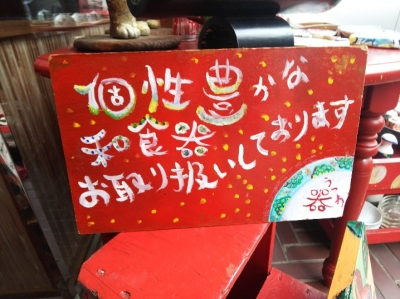 個性豊かな
和食器
お取り扱いしております
うつわ
器